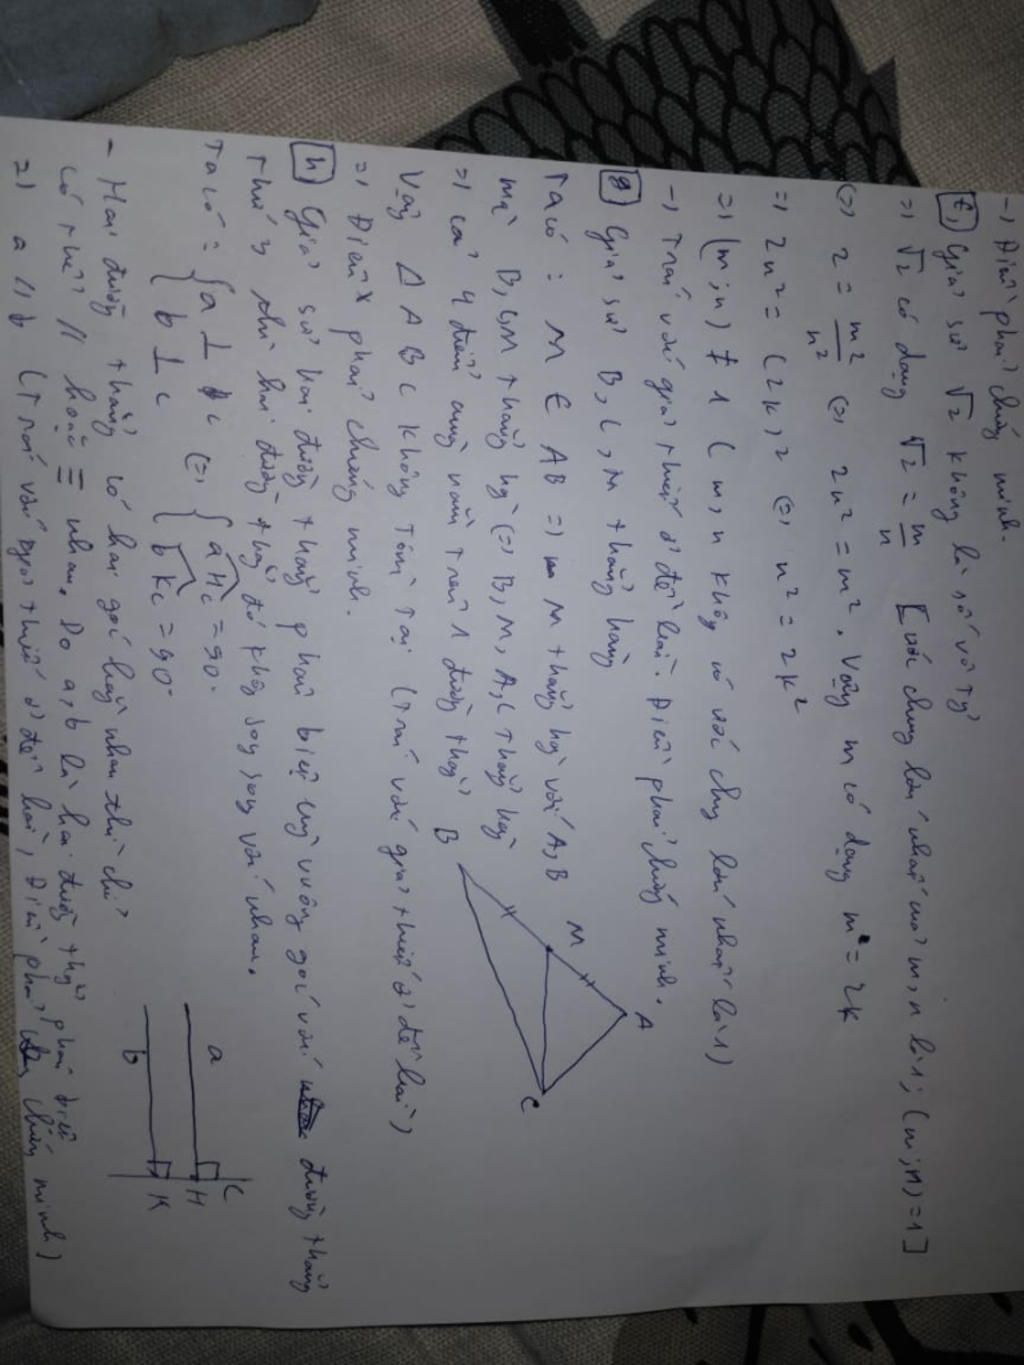 -) Điều phải chứng minh.
f) Giả sử √2 không là số vô tỷ
=) √2 có dạng √2 = m/n [ước chung lớn nhất của m, n là 1; (m;n) = 1]
(=) 2 = m²/n² (=) 2n² = m². Vậy m có dạng m = 2k
=) 2n² = (2k)² (=) n² = 2k²
=) (m;n) ≠ 1 (m, n không có ước chung lớn nhất là 1)
-) Trái với giả thiết ở đề bài. Điều phải chứng minh.
g) Giả sử B, C, M thẳng hàng
Ta có : M ∈ AB =) M thẳng hàng với A, B
mà B, C, M thẳng hàng (=) B, M, A, C thẳng hàng
=) cả 4 điểm cùng nằm trên 1 đường thẳng
Vậy Δ ABC không tồn tại (trái với giả thiết ở đề bài)
=) Điều phải chứng minh.
A
M
B
C
h) Giả sử hai đường thẳng phân biệt cùng vuông góc với đường thẳng
thứ 3 thì hai đường thẳng đó không song song với nhau.
Ta có : { a ⊥ c (=) { aHc = 90°
{ b ⊥ c { bKc = 90°
- Hai đường thẳng có hai góc bằng nhau thì chỉ
có thể // hoặc ≡ nhau. Do a, b là hai đường thẳng phân biệt
=) a // b (trái với giả thiết ở đề bài, Điều phải chứng minh)
C
a
H
b
K